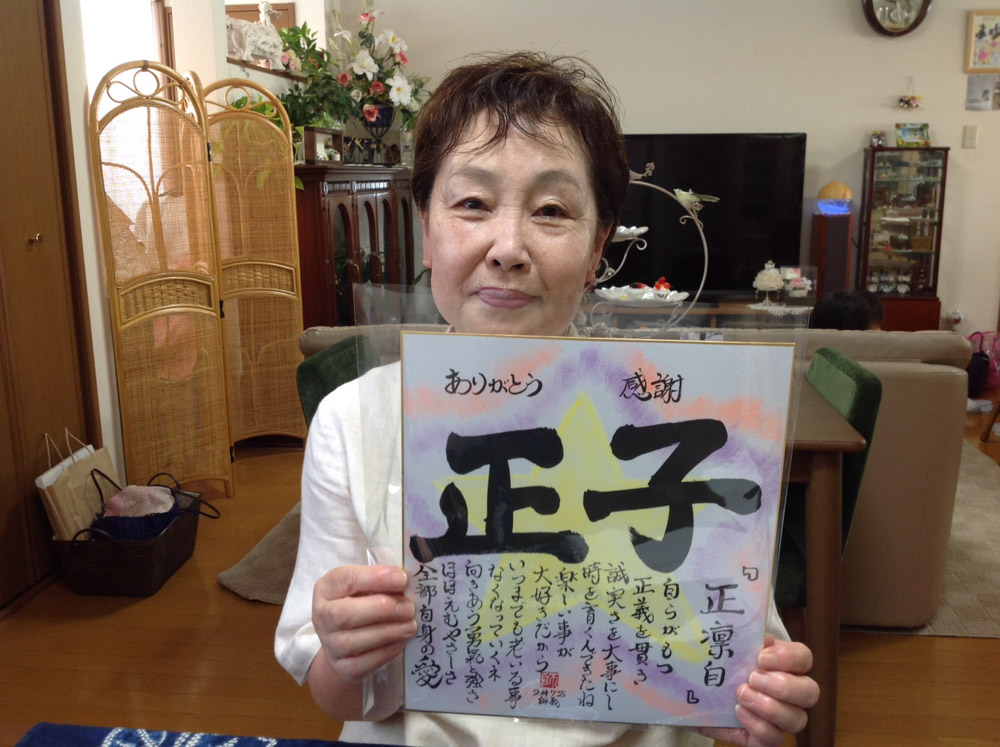 ありがとう
感謝
正子
『正凛自』
自らがもつ
正義を貫き
誠実さを大事にし
時を育くんできたね
楽しい事が
大好きだから
いつまでも老いる事
なくなっていくネ
向きあう勇気と強さ
ほほえむやさしさ
全部自身の愛